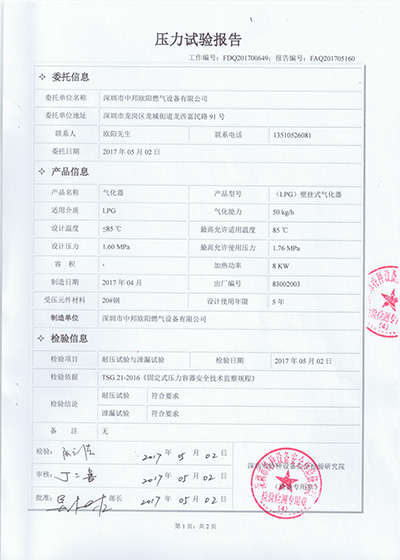 压力试验报告
工作编号：FDQ201700649；报告编号：FAQ201705160
委托信息
委托单位名称 深圳市中邦欧阳燃气设备有限公司
委托单位地址 深圳市龙岗区龙城街道龙西富民路 91 号
联系人 欧阳先生 联系电话 13510526081
委托日期 2017 年 05 月 02 日
产品信息
产品名称 气化器 产品型号 （LPG）壁挂式气化器
适用介质 LPG 气化能力 50 kg/h
设计温度 ≤85 ℃ 最高允许适用温度 85 ℃
设计压力 1.60 MPa 最高允许使用压力 1.76 MPa
容 积 - 加热功率 8 KW
制造日期 2017 年 04 月 出厂编号 83002003
受压元件材料 20#钢 设计使用年限 5 年
制造单位 深圳市中邦欧阳燃气设备有限公司
检验信息
检验项目 耐压试验与泄漏试验 检验日期 2017 年 05 月 02 日
检验依据 TSG 21-2016《固定式压力容器安全技术监察规程》
检验结论 耐压试验 符合要求
泄漏试验 符合要求
备 注 无
检验： 2017 年 05 月 02 日
审核： 丁二喜 2017 年 05 月 02 日 深圳市特种设备安全检验研究院
批准： 部长 2017 年 05 月 02 日
检验检测专用章
(4)
第 1 页；共 2 页